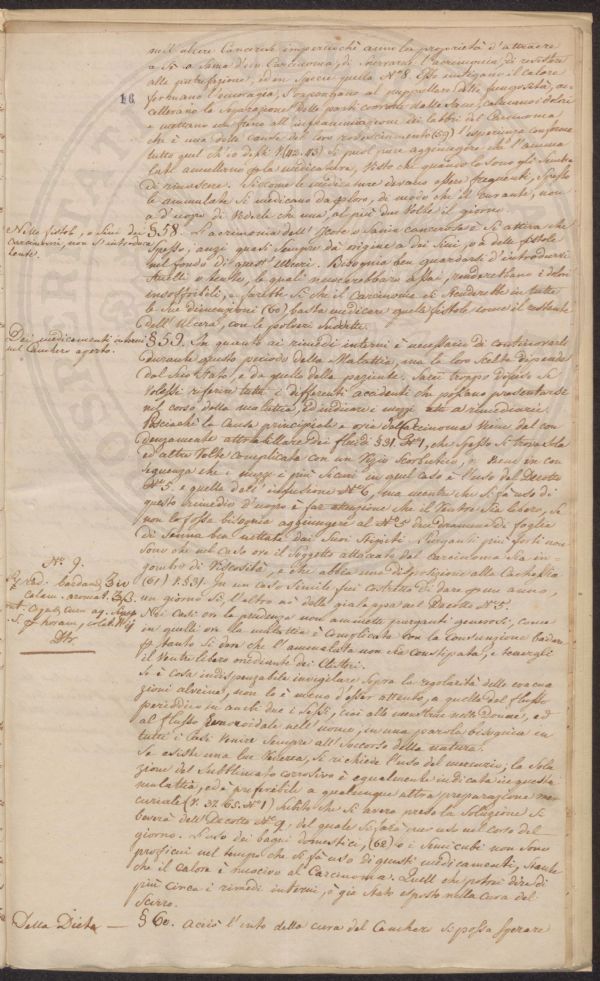 16
nell'ulcere Cancerose imperciochè anno la proprietà d'attraere
a Sè o Sema d'un Carcinoma, di snervare l'acrimonia, di resistere
alla putrefazione, ed in Specie quella N° 8. Esse mitigano il calore
fermano l'emoragia, S'oppongano al pupullare delle fungosità, ac-
cellerano la Separazione delle parti corrotte dalle Sane, calmano i dolori
e mettano un freno all'infiammazione dei labbri del Carcinoma
che è una delle cause del loro rovesciamento (59) l'esperienza conferma
tutto quel ch'io dissi V(42. 43) si può pure aggiungere che l'amma
late amettono la medicatura, visto che quando lo Sono gli Sembra
di rinascere. Siccome le medicature devano esser frequenti, Spesso
le ammalate Si medicano da loro, di modo che il curante, non
a d'uopo di Vederle che una, al più due Volte il giorno
Nelle fistole, o Sini dei
carcinomi, non S'introduca
tente.
§. 58. L'acremonia dell'Icore o Sanie cancerosa è Si attiva che
Spesso, anzi quasi Sempre dà origine a dei Sini, o a delle fistole
nel fondo di quest'Ulceri. Bisognia ben guardarsi d'introdursi
Stuelli o tente, le quali nuocerebbero assai, renderebbano i dolori
insoffribili, e farebbe Si che il Carcinoma Si Stenderebbe in tutte
le Sue dimenzioni (60) basta medicare quelle fistole come il restante
dell'Ulcera, con le polveri Sudette.
Dei medicamenti interni
nel Canchero aperto.
§. 59. In quanto ai rimedi interni è necessario di continovarli
durante questo periodo della Malattia, ma la loro Scelta dipende
dal Suo Stato, e da quello della paziente. Sarei troppo diffuso Si
Volessi riferire tutti i differenti accidenti che possano presentarsi
nel corso della malattia, ed indicare i mezzi atti a rimediarvi
Posciachè la Causa principiale e oria del Carcinoma Viene dal con
densamento attrabillare dei fluidi §. 31. N° 1, che Spesso Si trova Sola
ed altre Volte complicata con un Vizio Scorbutico, ne Viene in con
sequenza che i mezzi e più Sicuri in quel caso è l'uso del Decotto
N° 5. e quello dell'infusione N° 6, ma mentre che Si fà uso di
questo rimedio d'uopo è far attenzione che il Ventre Sia libero, Se
non lo fosse bisognia aggiungere al N° 5 due dramme di foglie
di Senna ben nettate dai Suoi Stipiti. Purganti più forti non
Sono che nel Caso ove il Soggetto attaccato dal Carcinoma Sia in-
gombro di Viscosità, e che abbia una disposizione alla Cachessia
(61) V. §. 31. In un caso Simile fui costretto di dare per un anno,
un giorno Sì, l'altro nò della gialappa nel Decotto N° 5.
N° 9.
Rx Rad. bardanæ ℥iv
Calam. aromat. ℥ß.
Nei Casi ove la prudenza non ammette purganti generosi, come
in quelli ove la malattia è complicata con la Consunzione badare
per tanto Si deve che l'ammalata non Sia constipata, e tenergli
il Ventre libero mediante dei Clisteri.
Se è cosa indispenzabile invigilare Sopra la regolarità delle evacua
zioni alveine, non lo è meno d'esser attento, a quella del flusso
periodico in anche due i Sessi, cioè alle mestrue nelle Donne, ed
al flusso Emoroidale nell'uomo, in una parola bisognia in
tutti i Casi Venire Sempre all'Soccorso della natura.
Se esiste una lue Venerea, Si richiede l'uso del mercurio, la Solu
zione del Subblimato corrosivo è egualmente indicata in questa
malattia, ed è preferibile a qualunque altra preparazione mer
curiale (V. 37. 65. N° 1) Subito che Si averà preso la Soluzione Si
beverà dell'Decotto N° 9, del quale Si farà pur uso nel corso del
giorno. L'uso dei bagni domestici, (62) o i Semicubi non Sono
proficui nel tempo che Si fà uso di questi medicamenti, Stante
che il calore è nuocivo al Carcinoma. Quell che potrei dire di
più circa i rimedi interni, è già Stato esposto nella Cura del
Scirro.
Della Dieta —
§ 60. Acciò l'esito della cura del Canchero Si possa Sperare